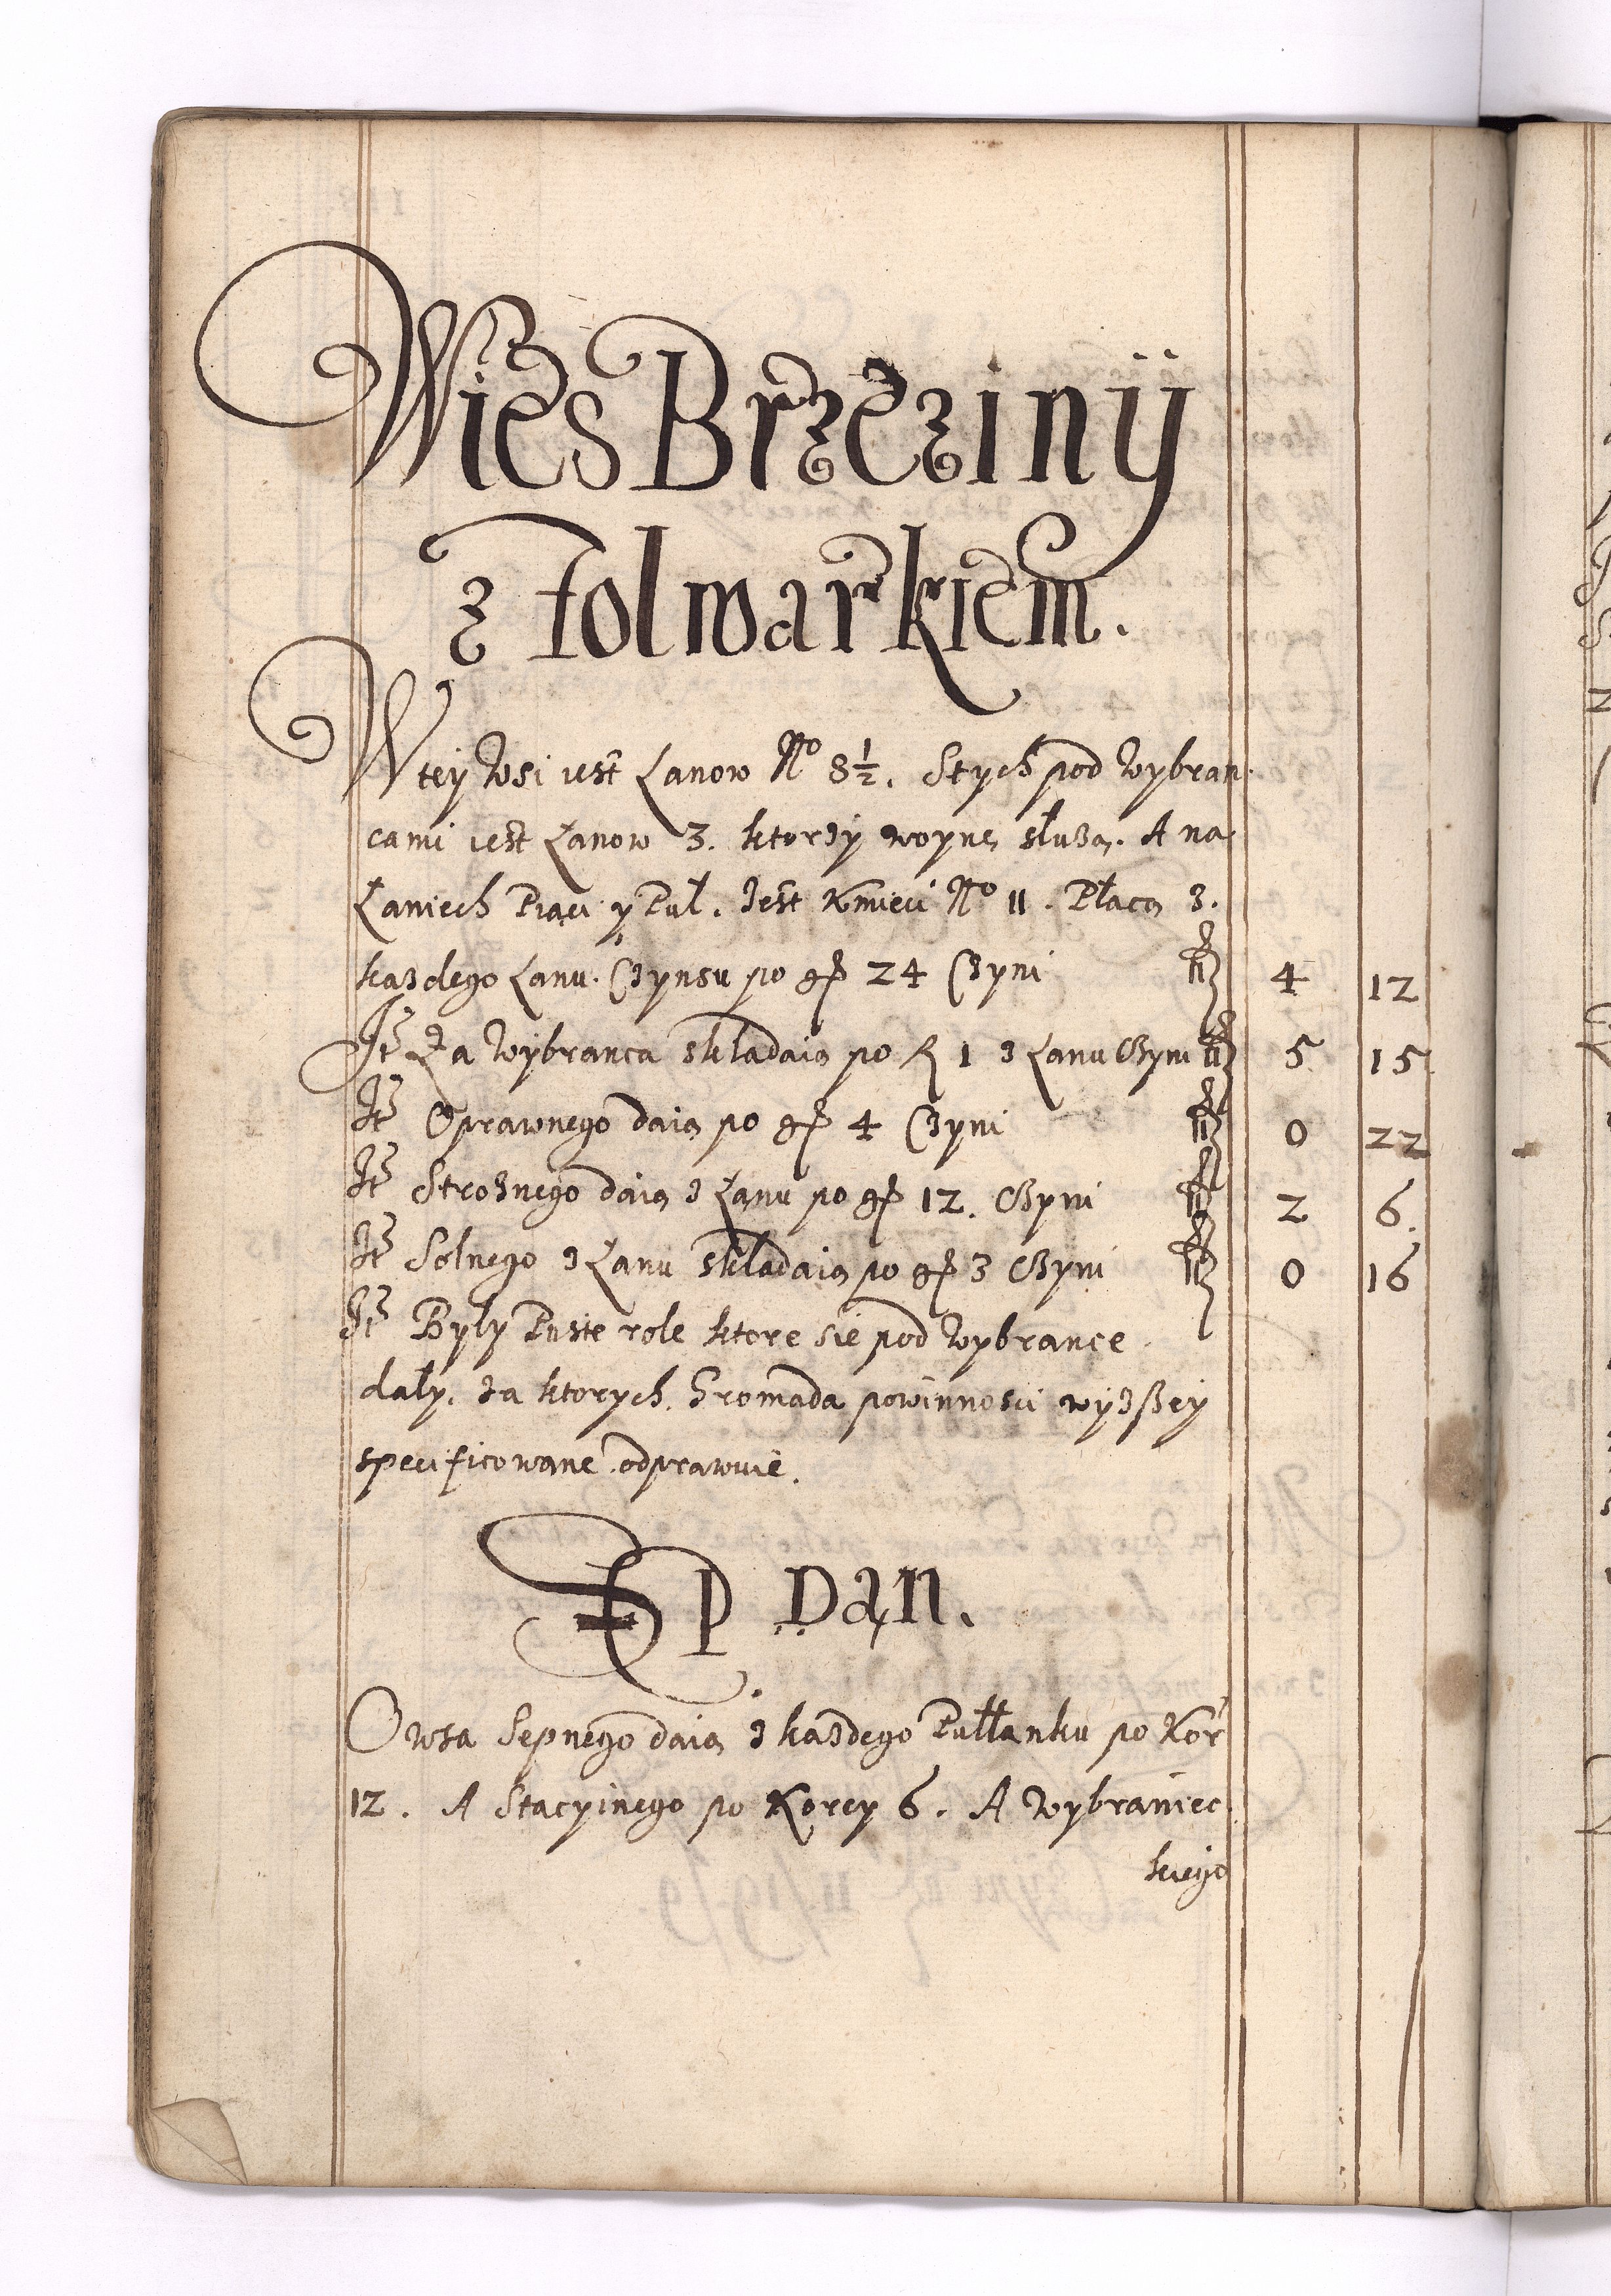 Wies Brzeziny
z Folwarkiem.
W tey Wsi iest Łanow No 8½. Stych pod Wybran
cami iest Łanow 3. ktorzy woynę służą. A na
Łaniech Piąci y Puł. Jest Kmieci No 11. Płacą z
każdego Łanu. Czynsu po gr 24 Czyni 4 12
It Za Wybranca składaią po fl 1 z Łanu Czyni 5 15
It Oprawnego daią po gr 4 Czyni 0 22
It Strożnego daią z Łanu po gr 12. Czyni 2 6.
It Solnego z Łanu składaią po gr 3 Czyni 0 16
It Były Puste role ktore sie pod Wybrance
dały, za ktorych Gromada powinnosci wyzszey
specificowane odprawuie.
Dan.
Owsa Sepnego daią z każdego Pułłanku po Kor
12. A Stacyinego po Korcy 6. A Wybraniec
kiego